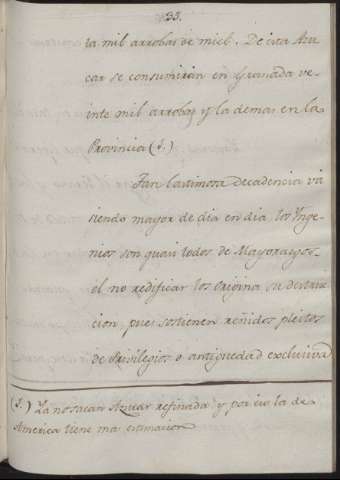 35.
ta mil arrobas de miel. De esta Azu
car se consumirán en Granada ve-
inte mil arrobas y la demas en la
Provincia (S.)
Tan lastimosa decadencia vá
siendo mayor de dia en dia los Ynge-
nios son quasi todos de Mayorazgos
el no redificar los origina su destru-
cion pues sostienen reñidos pleitos
de Privilegios o antiguedad exclusiva
(S.) Ya no sacan Azucar refinada y por eso la de
America tiene mas estimacion